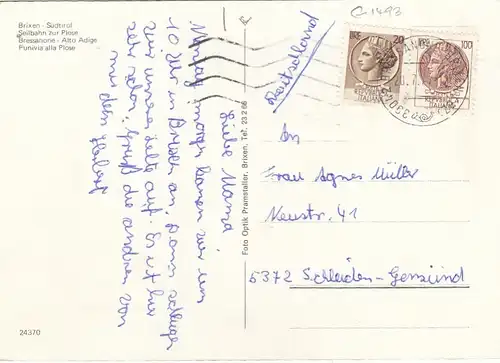 Brixen - Südtirol
Seilbahn zur Plose
Bressanone - Alto Adige
Funivia alla Plose
C-1493
Deutschland
20
100
ITALIANE
ITALIANE
Liebe Mama!
Montag morgen kamen wir um
10 Uhr in Brixen an. Dann schlugen
wir unsere Zelte auf. Es ist hier
sehr schön. Grüß die anderen von
mir dein Herbert
Foto Optik Pramstaller, Brixen, Tel. 23 2 66
An
Frau Agnes Müller
Neustr. 41
5372 Schleiden-Gemünd
24370